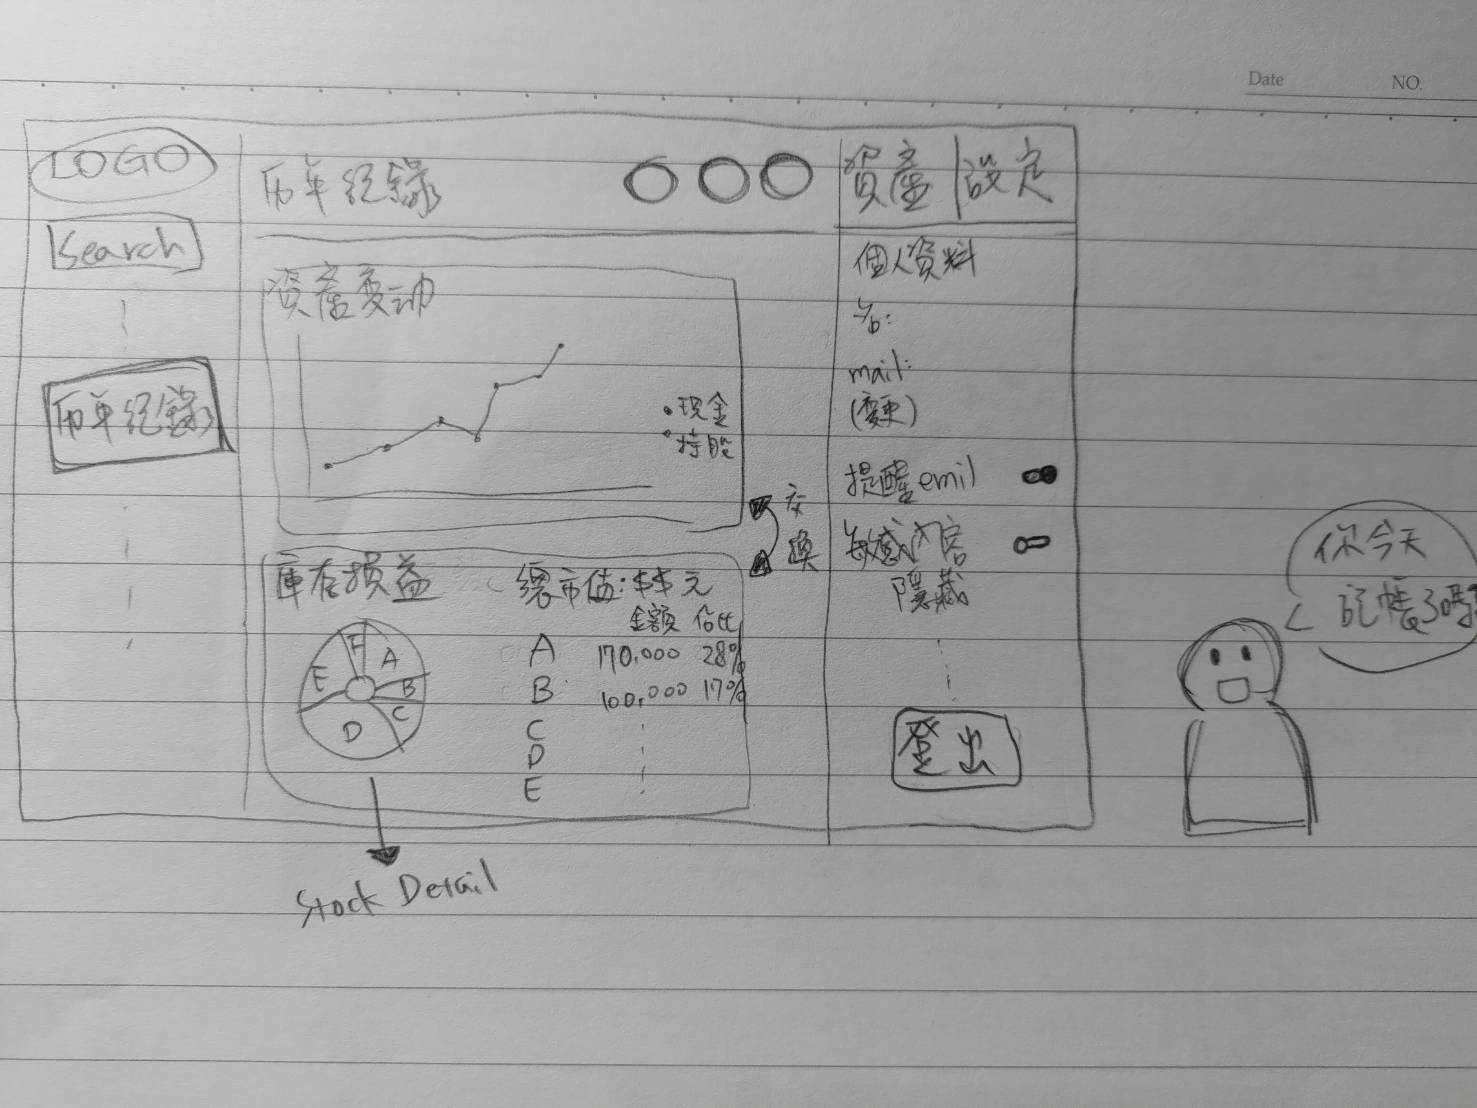 Date NO.
LOGO
Search
历年纪錄
历年纪錄
資產变动
現金
持股
交
換
庫存損益 總市值:$$元
金額 佔比
A 170,000 28%
B 100,000 17%
C
D
E
F
A
B
C
D
E
Stock Detail
資產 設定
個人資料
mail:
(变更)
提醒emil
敏感內容
隱藏
登出
你今天
記帳了嗎